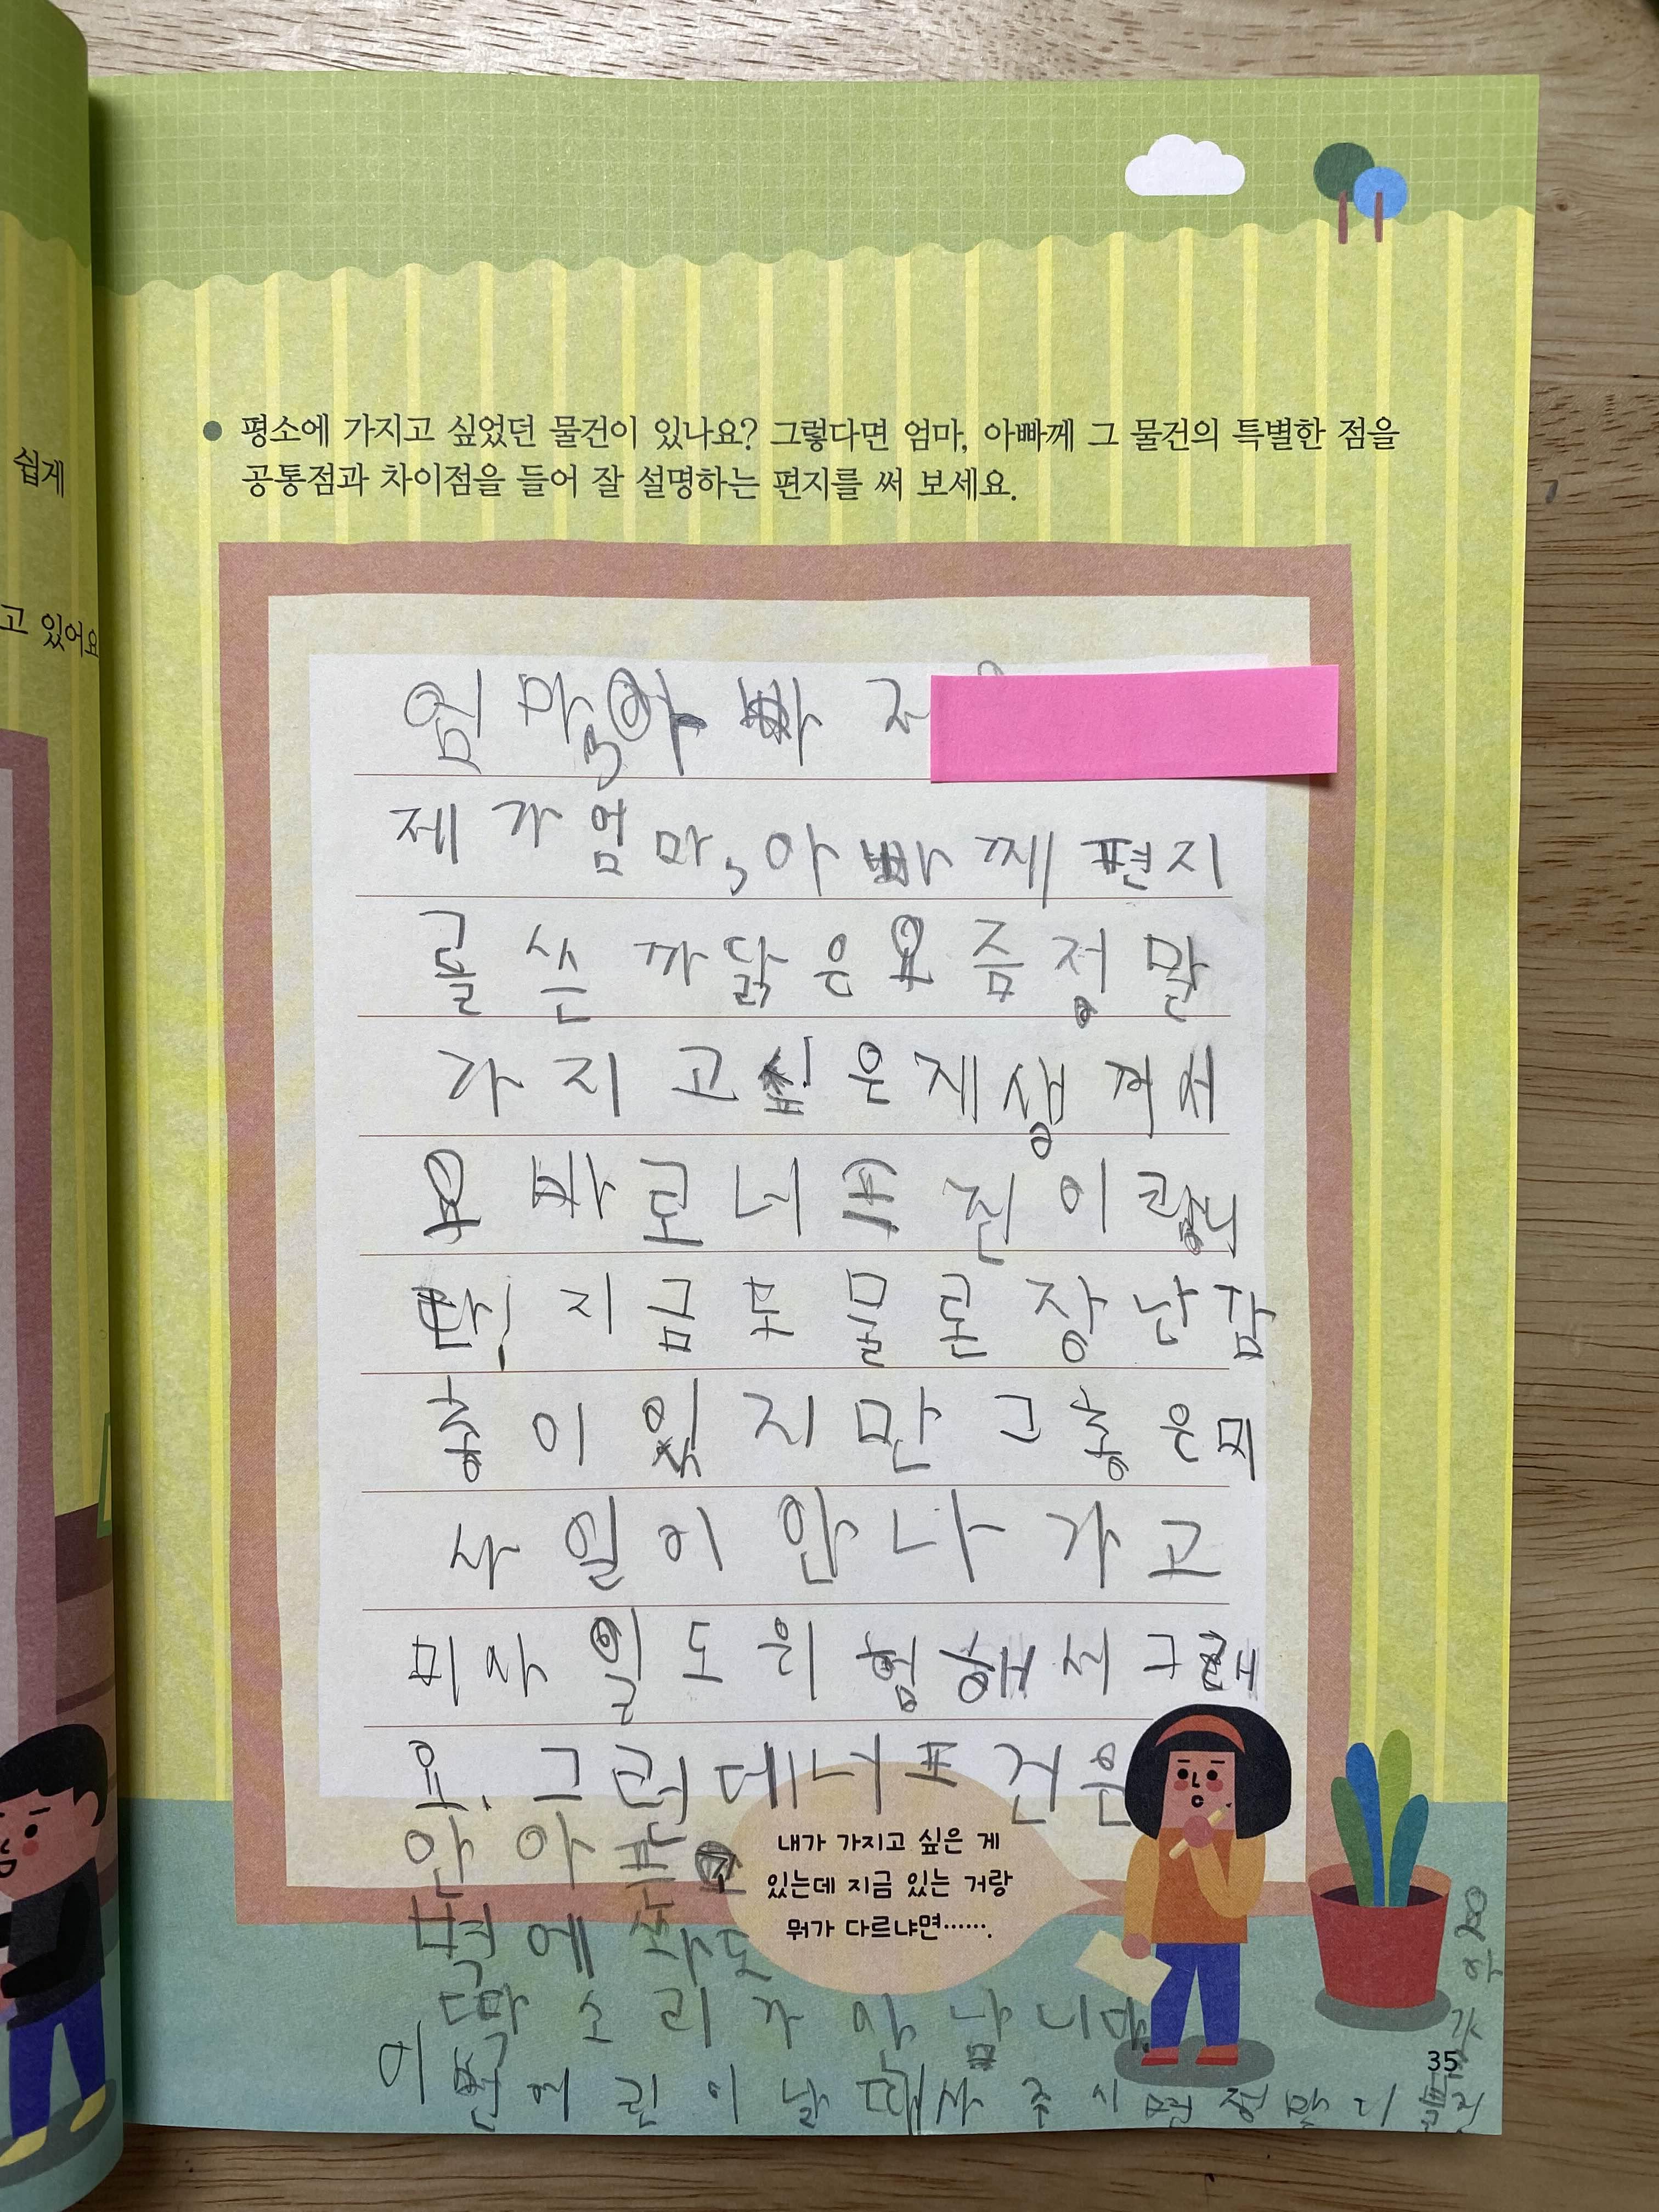 쉽게
고 있어요
평소에 가지고 싶었던 물건이 있나요? 그렇다면 엄마, 아빠께 그 물건의 특별한 점을
공통점과 차이점을 들어 잘 설명하는 편지를 써 보세요.
엄마, 아빠 저
제가 엄마, 아빠께 편지
를 쓴 까닭은 요즘 정말
가지고 싶은 게 생겨서
요 바로 너프진이랍니
다! 지금도 물론 장난감
총이 있지만 그 총은 미
사일이 안 나가고
미사일도 위험해서 그래
요. 그런데 너프건은
안 아프고
벽에 쏴도
딱 소리가 안 납니다.
이번 어린이날 때 사 주시면 정말
내가 가지고 싶은 게
있는데 지금 있는 거랑
뭐가 다르냐면…….
35